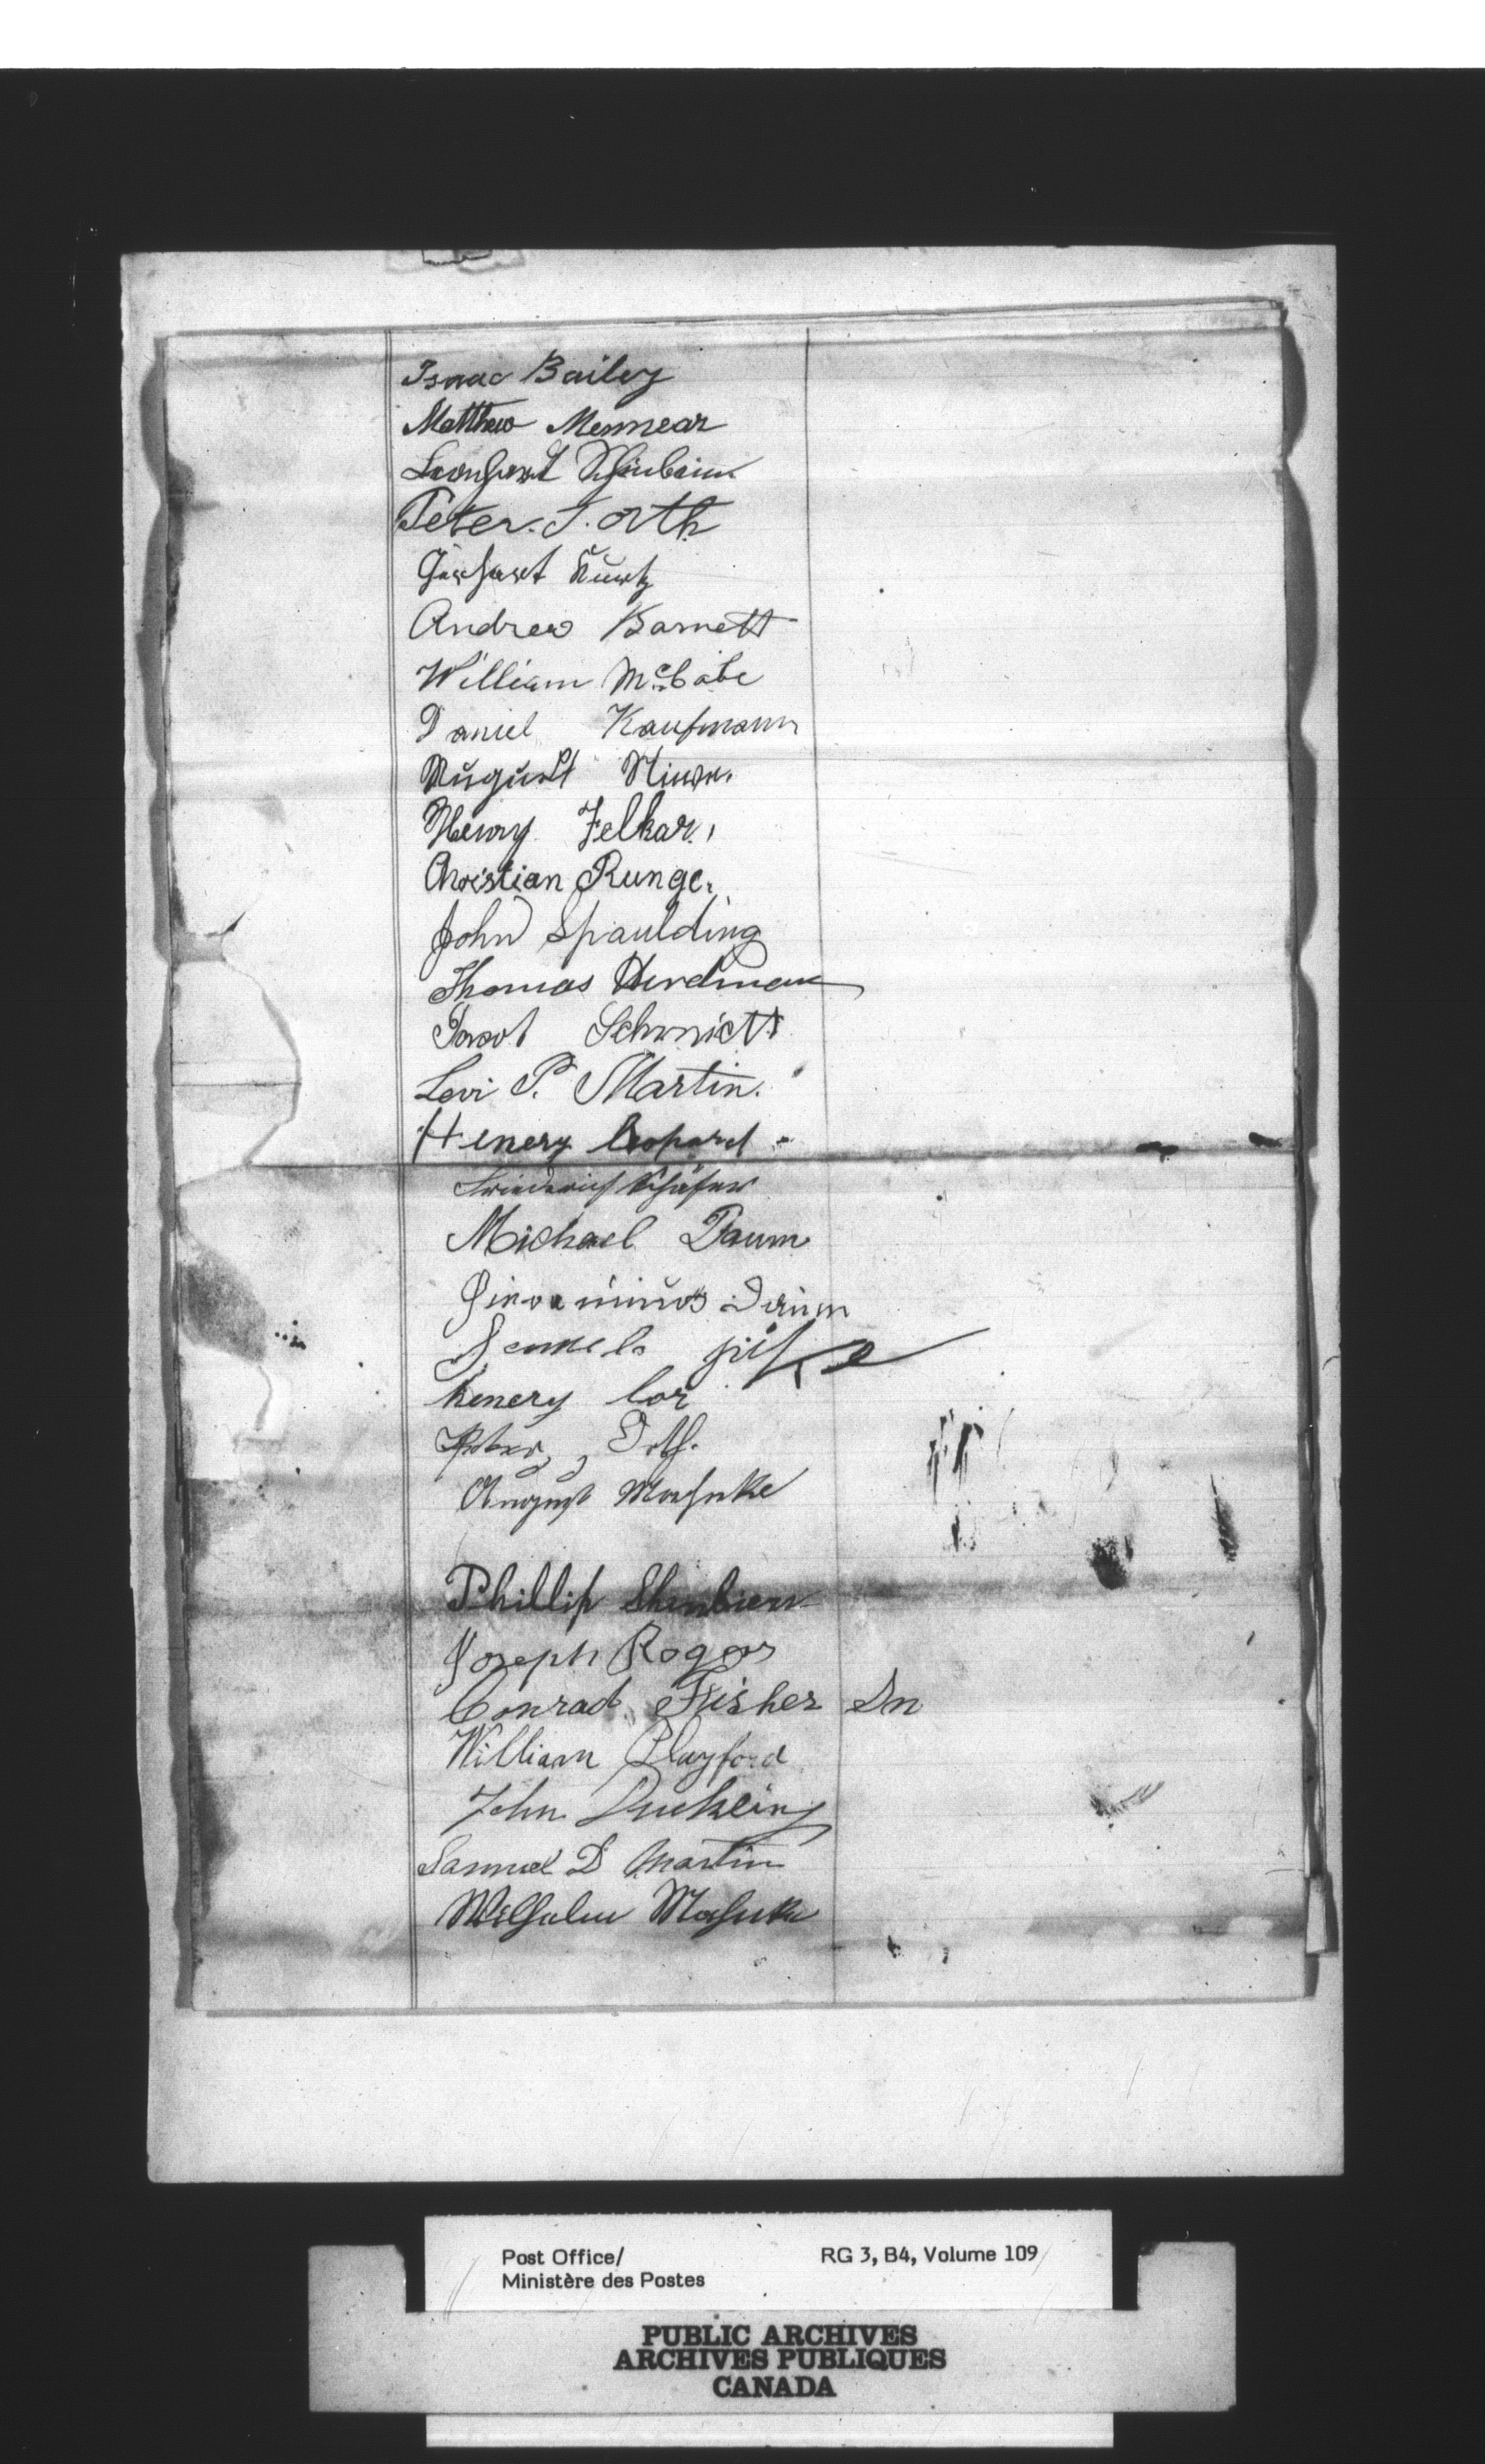 Isaac Bailey
Matthew Mennear
Leonhart Scheinbein
Peter. S. orth
Gerhart Kurtz
Andrew Barnett
William McCabe
Daniel Kaufmann
August
Henry Felkar.
Christian Runge.
John Spaulding
Thomas Herdman
Schmidt
Levi P. Martin.
Henery leopard
Friederich Schäfer
Michael Daum
Daum
henery
Peter Orth.
August Mahnke
Phillip Shinbien
Joseph Roger
Conrad Fisher Sn
William Playford
John Duckling
Samuel D Martin
Wilhelm Mahnke
Post Office/ RG 3, B4, Volume 109
Ministère des Postes
PUBLIC ARCHIVES
ARCHIVES PUBLIQUES
CANADA